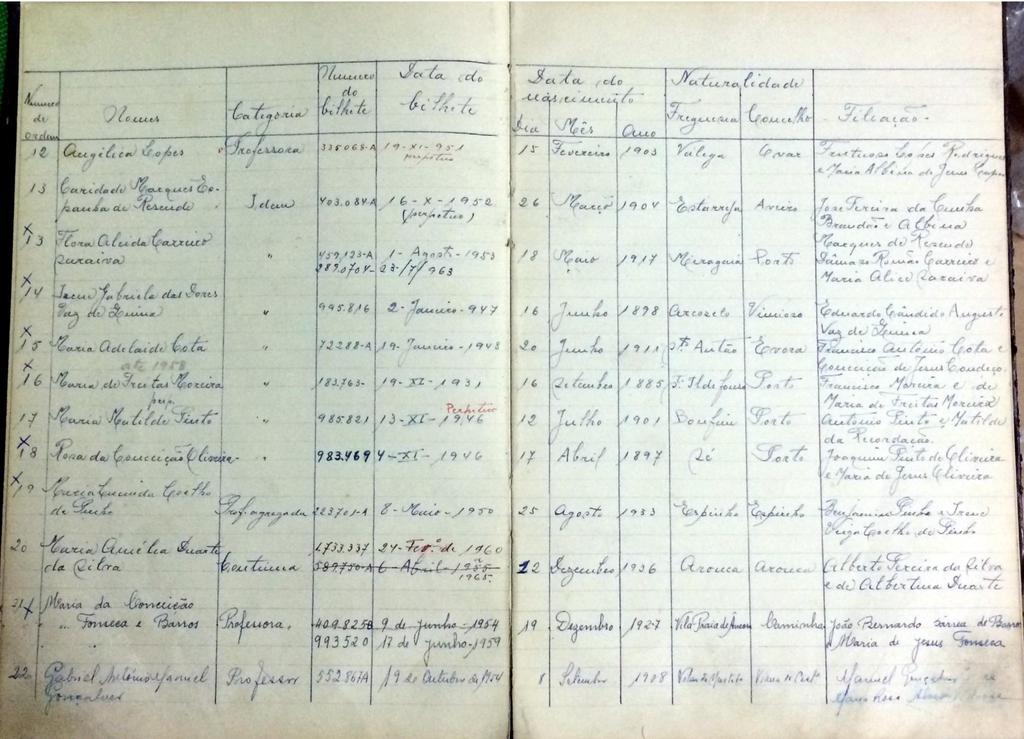 Numero de ordem
Nomes
Categoria
Numero do bilhete
Data do bilhete
Data do nascimento
Dia Mês Ano
Naturalidade
Freguesia Concelho
- Filiação -
12 Angélica Lopes Professora 335068-A 19-XI-951 15 Fevereiro 1903 Valega Ovar Frutuoso Lopes Rodrigues
perpétuo e Maria Albina de Jesus Lopes
13 Caridade Marques
de Resende Idem 403.084-A 16-X-1952 26 Março 1904 Estarreja Aveiro José Pereira da Cunha
(perpetuo) Brandão e Albina
Marques de Resende
x 13 Flora Alcida Carreiro
Saraiva " 459,123-A 1-Agosto-1953 18 Maio 1917 Miragaia Porto Dâmaso Romão Carreiro e
287.0704- 23/7/963 Maria Alice Saraiva
x 14 Irene Gabriela das Dores
Vaz de " 995.816 2-Janeiro-947 16 Junho 1898 Arcozelo Vimioso Eduardo Cândido Augusto
Vaz de
x 15 Maria Adelaide Cota " 72288-A 19-Janeiro-1948 20 Junho 1911 Stº Antão Evora Francisco António Cota e
até 1958 Conceição de Jesus
x 16 Maria de Freitas Moreira " 183.763- 19-XI-1931 16 Setembro 1885 Sº Ildefonso Porto Francisco Moreira e de
Maria de Freitas Moreira
17 Maria Matilde Pinto " 985.821 13-XI-1946 12 Julho 1901 Bonfim Porto António Pinto e Matilde
Perpétuo da Recordação
x 18 Rosa da Conceição Oliveira " 983.469 4-XI-1946 17 Abril 1897 Sé Porto Joaquim Pinto de Oliveira
e Maria de Jesus Oliveira
x 19 Maria Lucinda Coelho
de Pinho Prof. agregada 223701-A 8-Maio-1950 25 Agosto 1933 Espinho Espinho Benjamim Pinho e Irene
Veiga Coelho de Pinho
20 Maria Amélia Duarte 1733.337 24-Fevº de 1960
da Silva Contínua 589750-A 6-Abril-1955 12 Dezembro 1936 Arouca Arouca Alberto Pereira da Silva
1965. e de Albertina Duarte
21 x Maria da Conceição
" Fonseca e Barros Professora, 409.8258 9 de Junho-1954 19 Dezembro 1927 Vila Praia de Âncora Caminha João Bernardo Sarrea de Barros
993520 17 de Junho-1959 e Maria de Jesus Fonseca
22 Gabriel António Manuel
Gonçalves Professor 552867A 19 de Outubro de 1954 8 Setembro 1908 Manuel Gonçalves
Maria Rosa